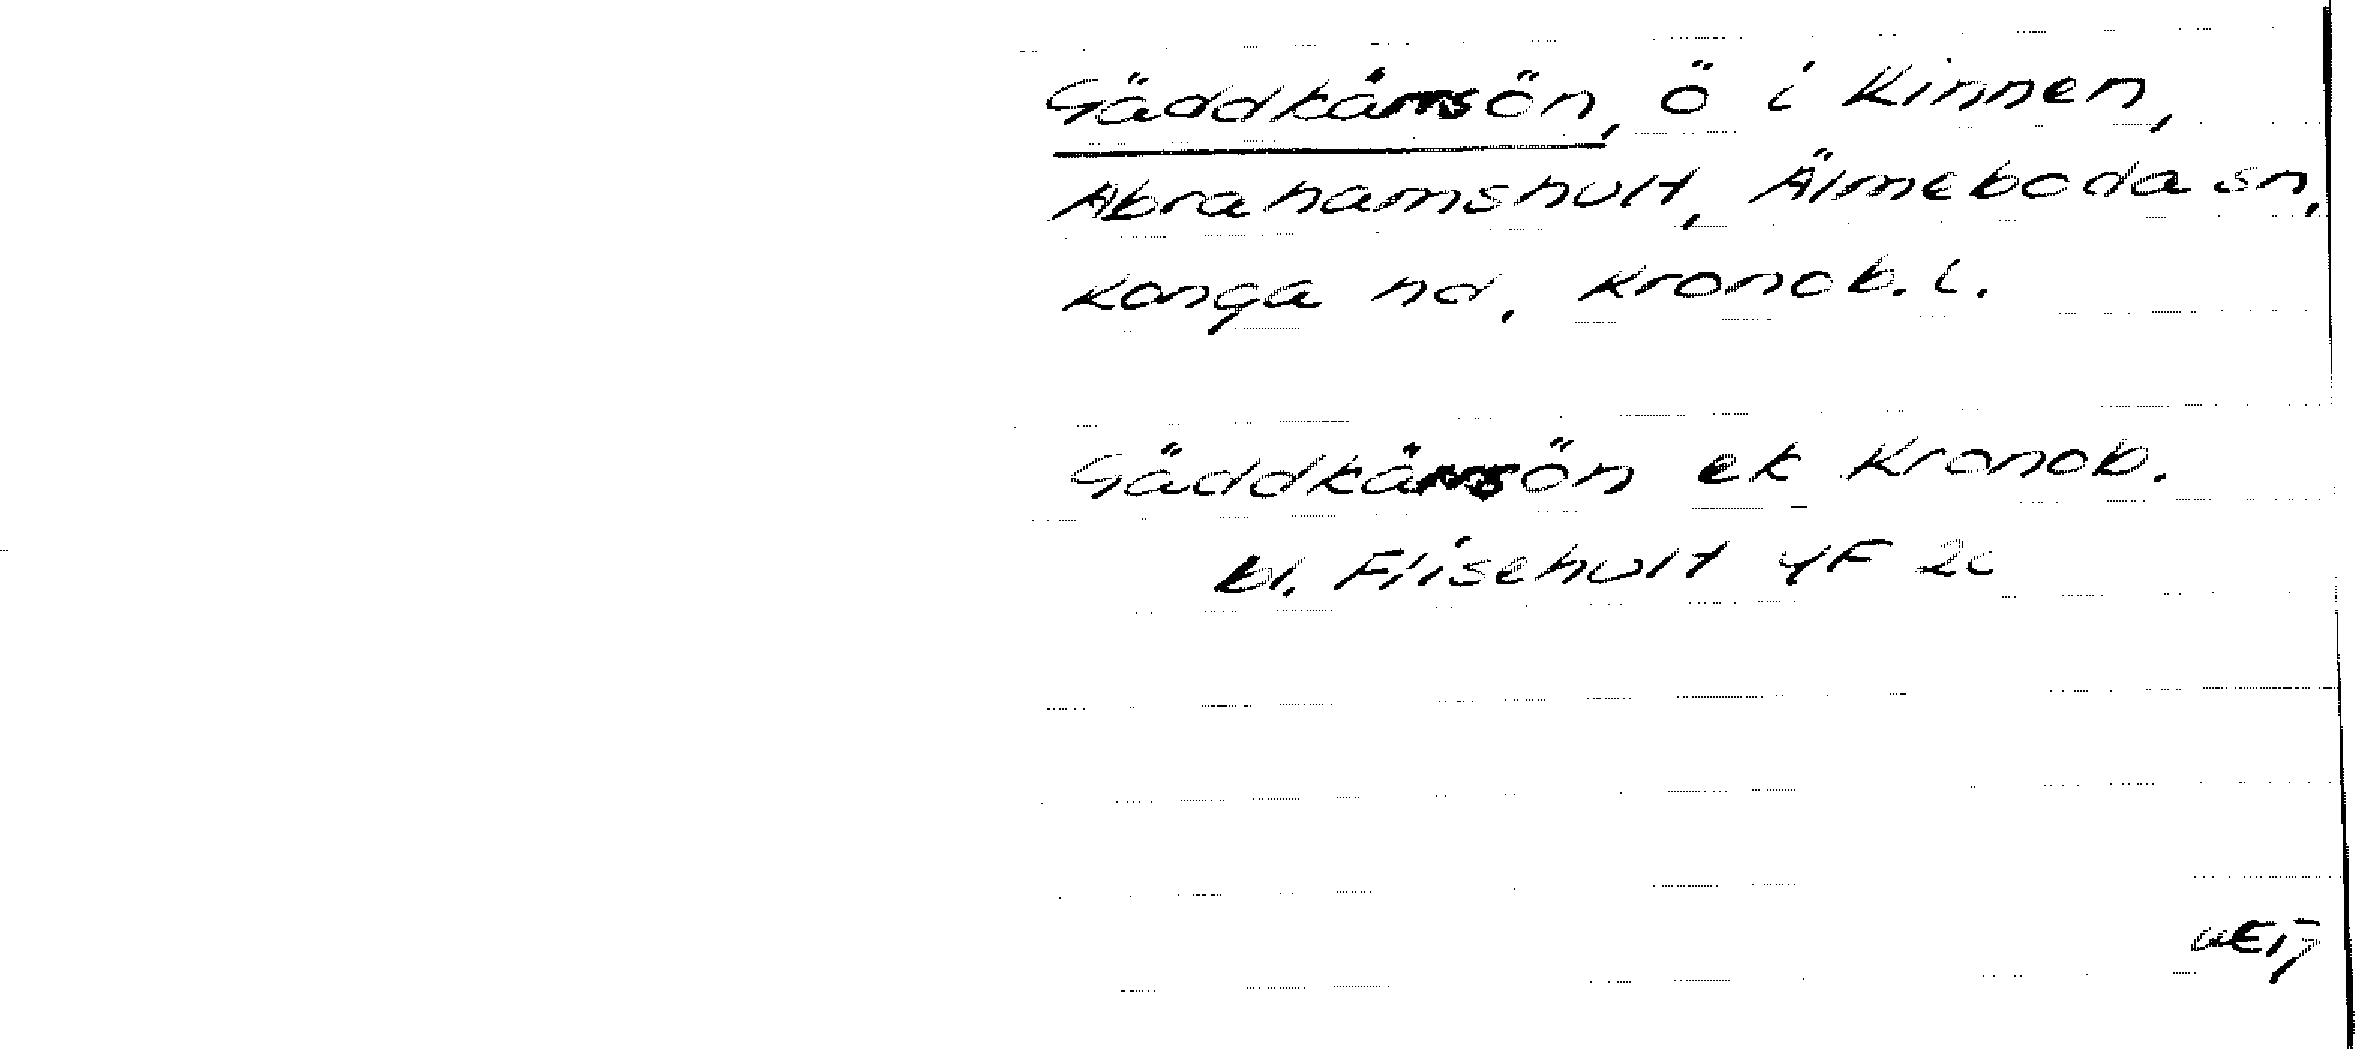 Gäddkärrsön, ö i Kinnen,
Abrahamshult, Älmeboda sn,
Konga hd, Kronob. l.
Gäddkärrsön ek Kronob.
bl. Flisehult 4F 2c